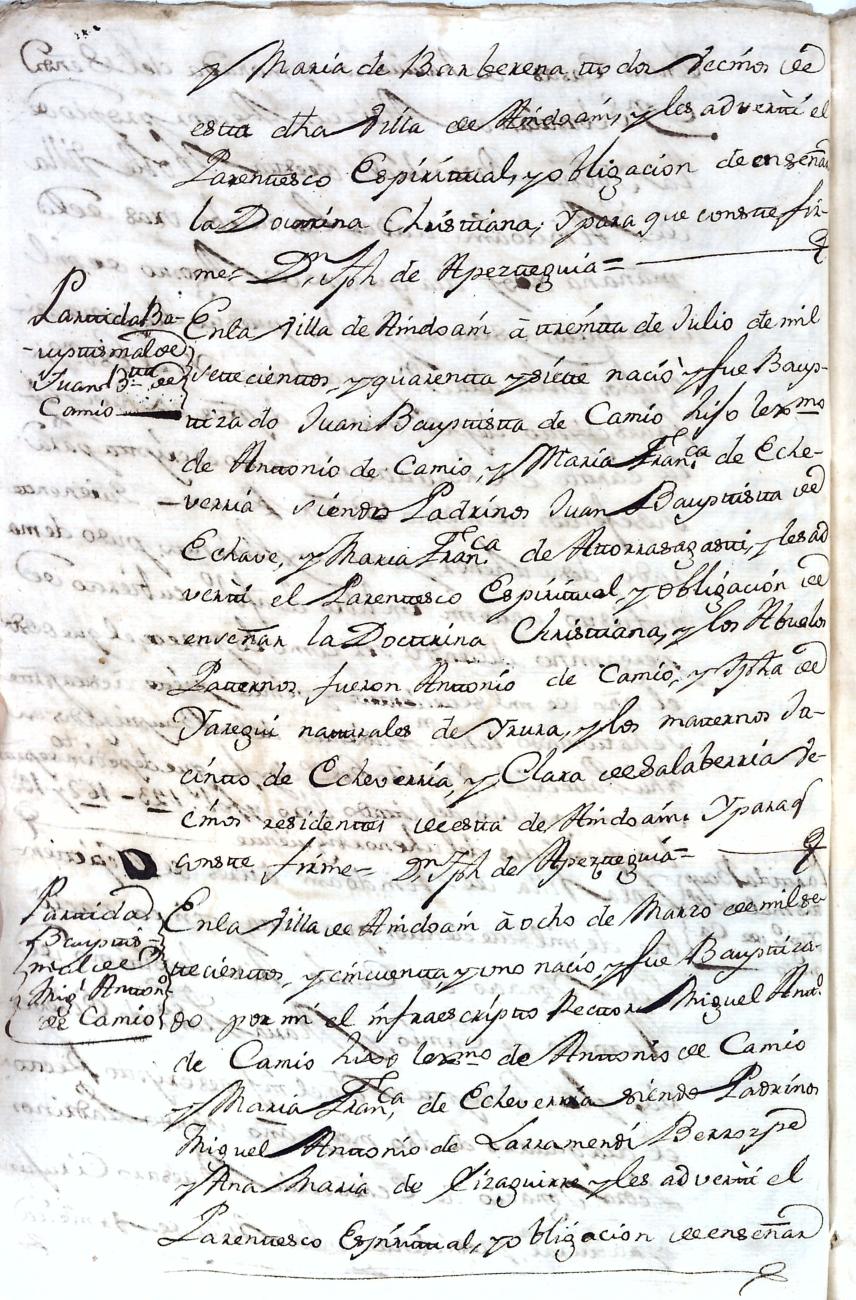 y Maria de Barberena ttodos Vecinos de
estta dha Villa de Andoain, y les adverttí el
Parenttesco Espirittual, y obligacion de enseñar
la Docttrina Christtiana; Y para que constte fir-
me= Dn. Jph de Aperttegui=
Parttida Ba-
upttismal de
Juan Btta. de
Camio
En la Villa de Andoain à ttreintta de Julio de mil
settecienttos, y quarentta y siette naciò y fue Baup-
ttizado Juan Baupttistta de Camio hijo lexmo
de Anttonio de Camio, y Maria Franca. de Eche-
verria siendo Padrinos Juan Baupttistta de
Echave, y Maria Franca. de Attorrasagastti, y les ad
verttí el Parenttesco Espirittual, y obligación de
enseñar la Docttrina Christtiana, y los Abuelos
Patternos fueron Anttonio de Camio, y Jpha de
Yaregui natturales de Yrura, y los matternos Ja-
cintto de Echeverria, y Clara de Salaberria Ve-
cinos residenttes de estta de Andoain. Y para q
constte firme= Dn. Jph de Aperttegui=
Parttida
Baupttis-
mal de
Migl. Antton.
de Camio
En la Villa de Andoain à ocho de Marzo de mil se-
ttecienttos, y cincuentta, y uno nacio, y fue Baupttiza-
do por mi el infraescriptto Rector Miguel Antto.
de Camio hixo lexmo. de Anttonio de Camio
y Maria Franca. de Echeverria siendo Padrinos
Miguel Anttonio de Larramendi Berrozpe
y Ana Maria de Eizaguirre y les adverttí el
Parenttesco Espirittual, y obligacion de enseñar